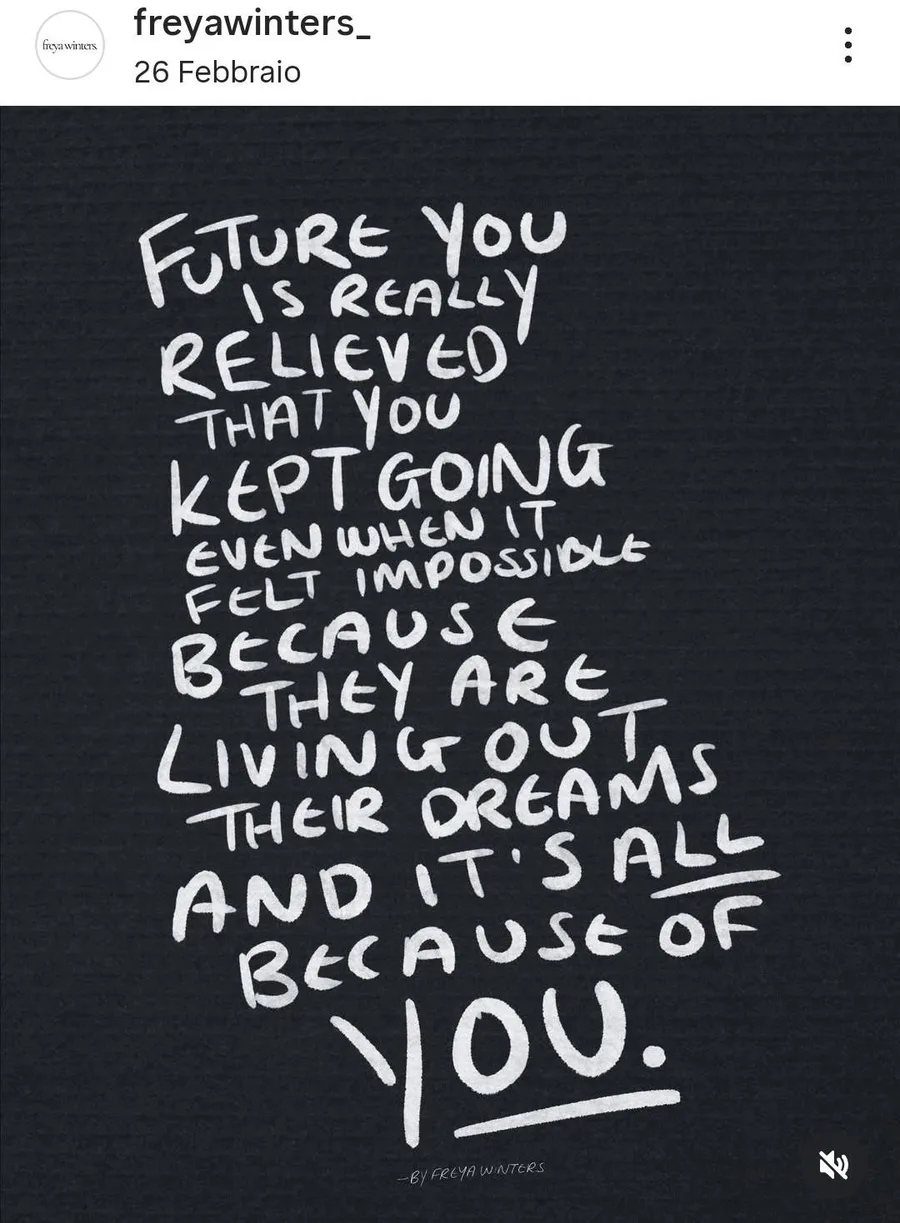 freya winters.
freyawinters_
26 Febbraio
FUTURE YOU
IS REALLY
RELIEVED
THAT YOU
KEPT GOING
EVEN WHEN IT
FELT IMPOSSIBLE
BECAUSE
THEY ARE
LIVING OUT
THEIR DREAMS
AND IT'S ALL
BECAUSE OF
YOU.
—BY FREYA WINTERS